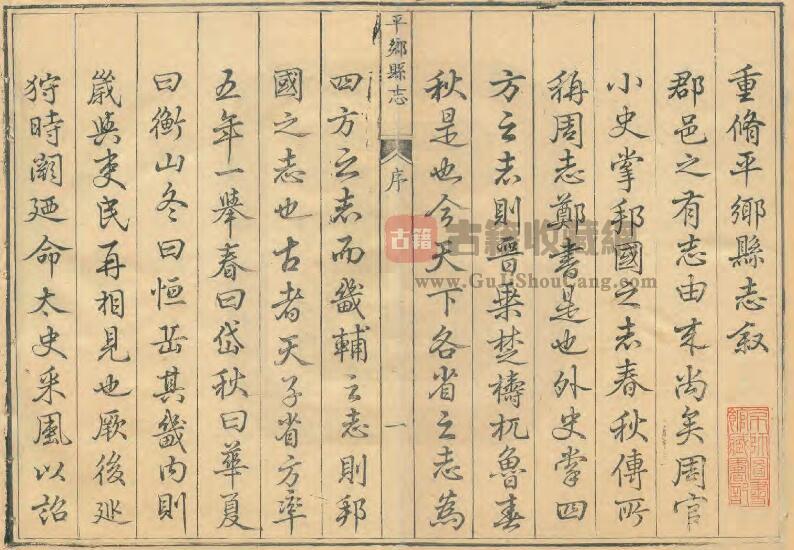 重脩平鄉縣志叙
郡邑之有志由来尚矣周官
小史掌邦國之志春秋傳所
稱周志鄭書是也外史掌四
方之志則晉乘楚檮杌魯春
秋是也今天下各省之志為
平鄉縣志
序
一
四方之志而畿輔之志則邦
國之志也古者天子省方率
五年一舉春曰岱秋曰華夏
曰衡山冬曰恒岳其畿内則
歲與吏民再相見也厥後巡
狩時闕廼命太史采風以詔
古籍
古籍收藏
www.GuJiShouCang.com